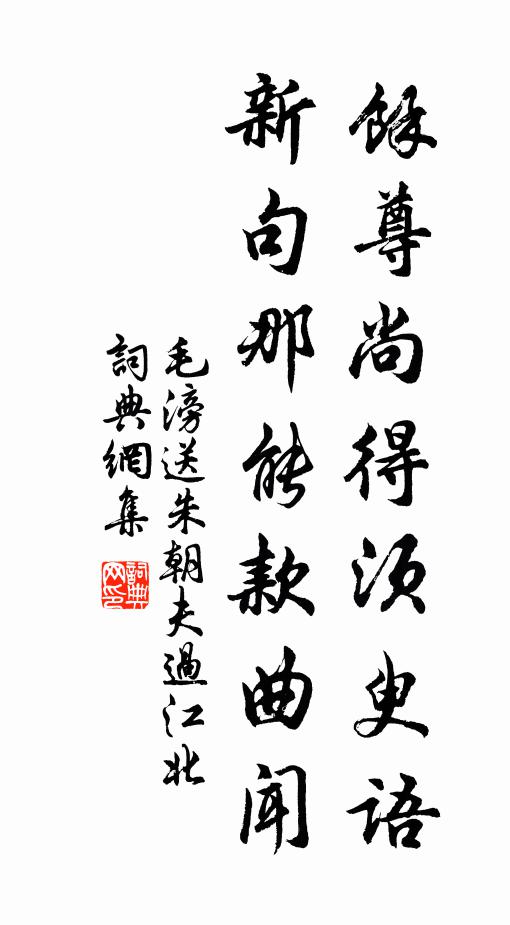 餘尊尚得須臾語
新句那能款曲聞
毛滂送朱朝夫過江北
詞典網集
詞典网印